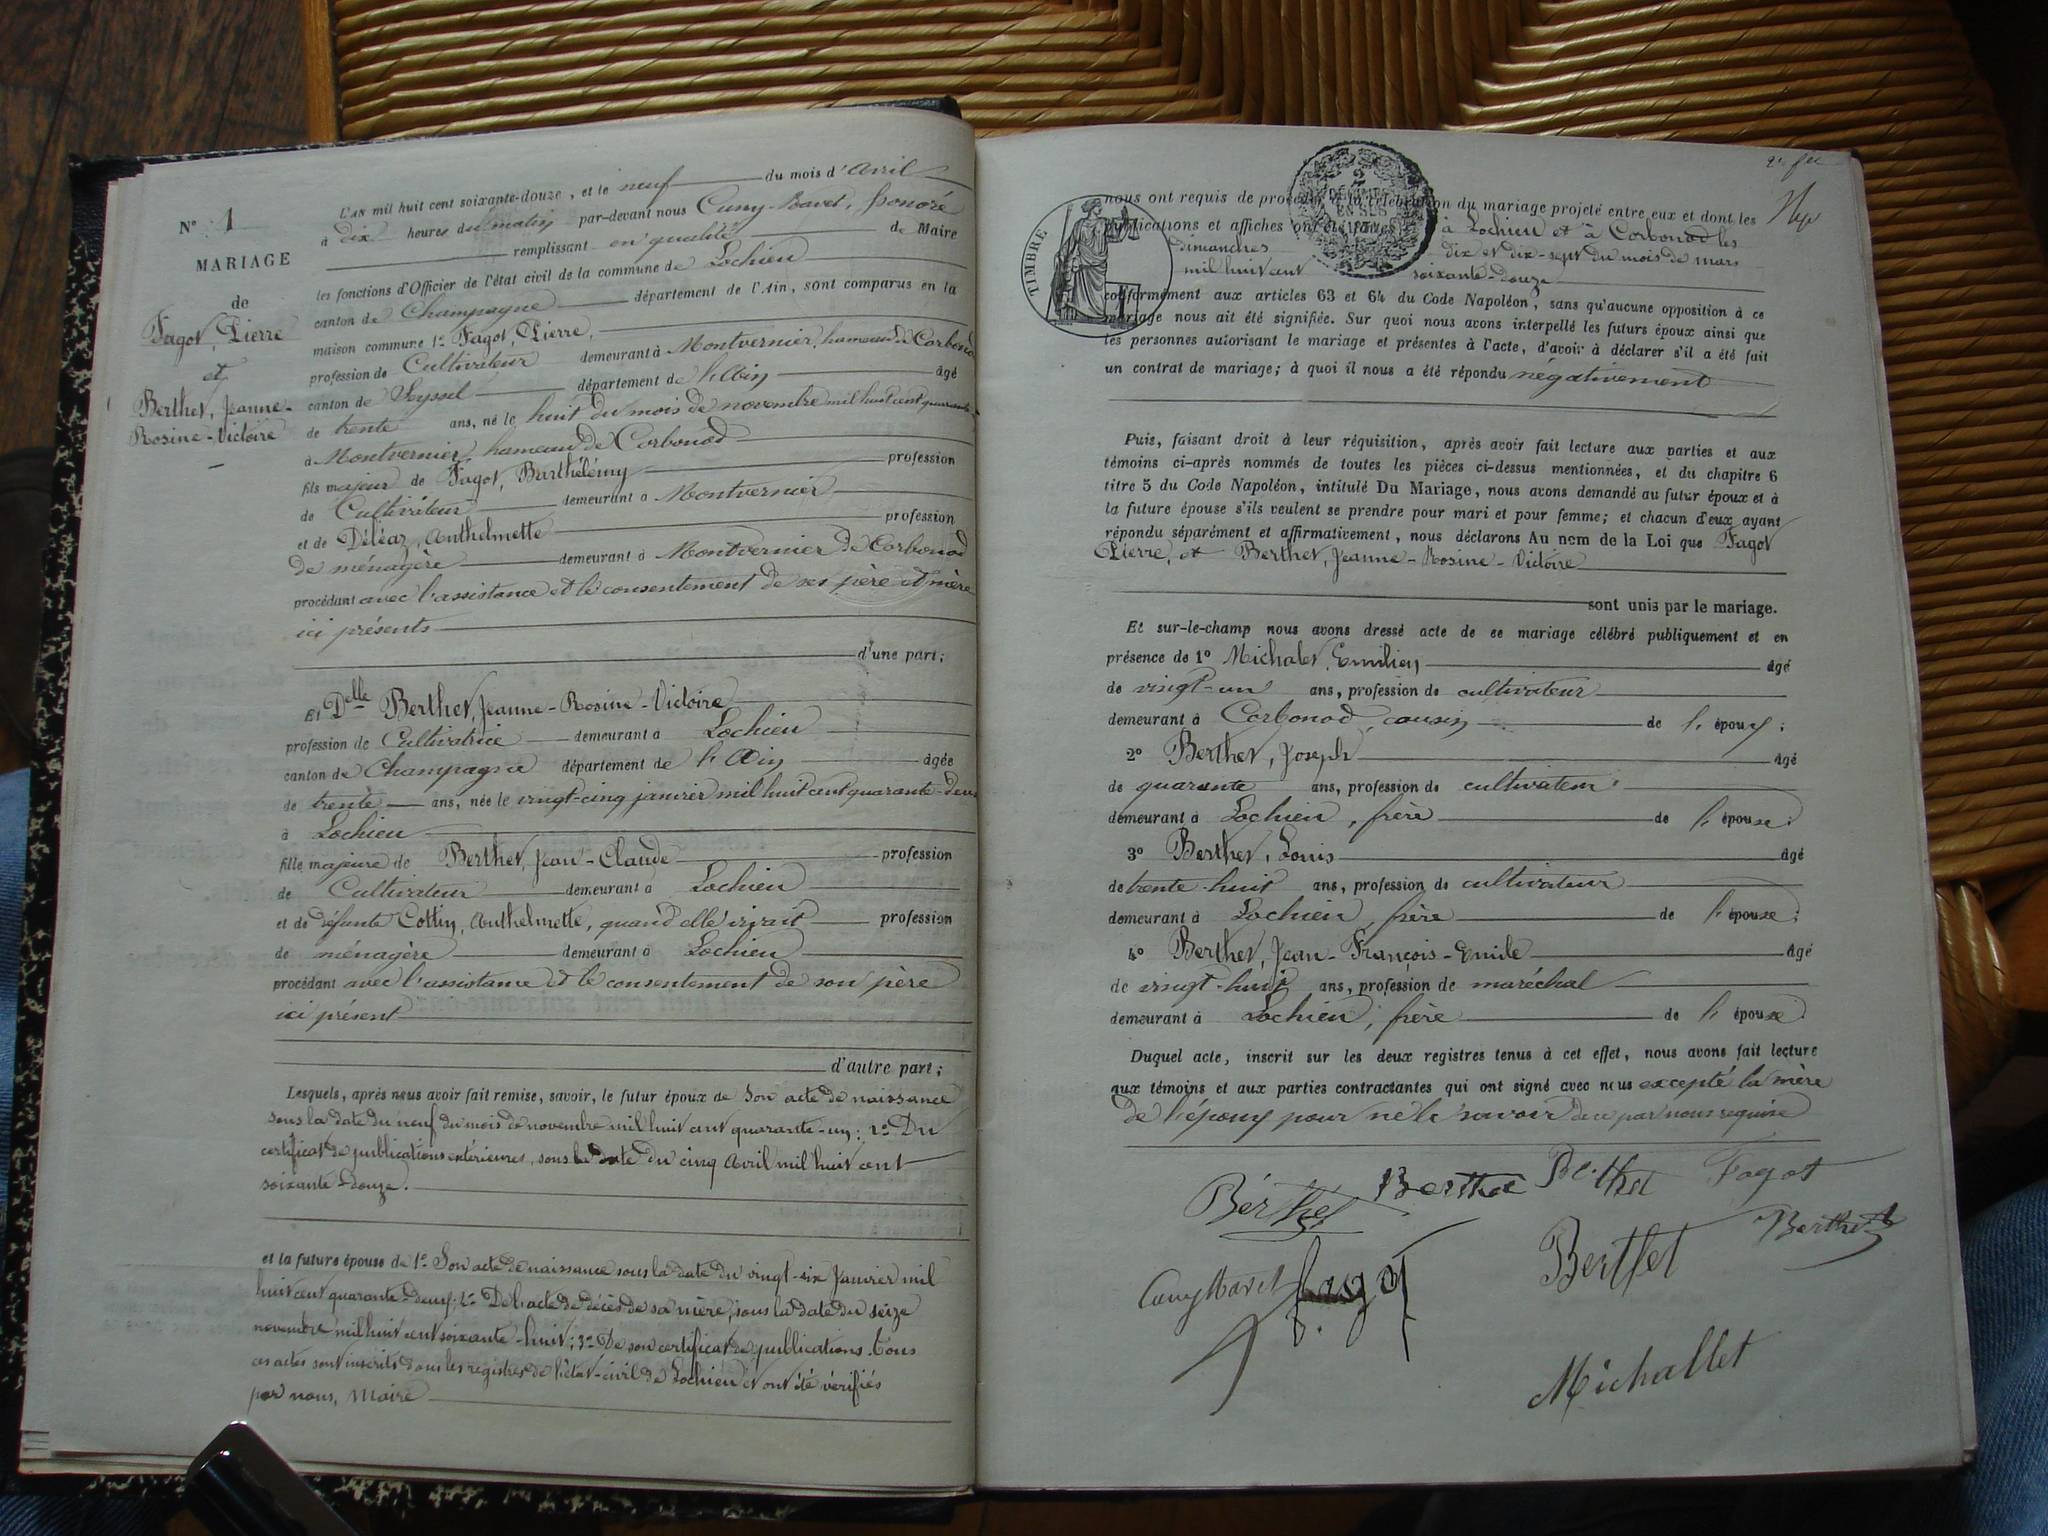 N° 1
MARIAGE
de
Fagot, Pierre
et
Berthet, Jeanne-
Rosine-Victoire
L'AN mil huit cent soixante-douze, et le neuf du mois d'Avril
à dix heures du matin par-devant nous Cuny-Ravet, Honoré
remplissant en qualité de Maire
les fonctions d'Officier de l'état civil de la commune de Lochieu
canton de Champagne département de l'Ain, sont comparus en la
maison commune 1° Fagot, Pierre,
profession de Cultivateur demeurant à Montvernier, hameau de Corbonod
canton de Seyssel département de l'Ain âgé
de trente ans, né le huit du mois de novembre mil huit cent quarante-
à Montvernier, hameau de Corbonod
fils majeur de Fagot, Barthélémy profession
de Cultivateur demeurant à Montvernier
et de Déléaz, Anthelmette profession
de ménagère demeurant à Montvernier de Corbonod
procédant avec l'assistance et le consentement de ses père et mère
ici présents
d'une part;
Et Delle Berthet, Jeanne-Rosine-Victoire
profession de Cultivatrice demeurant à Lochieu
canton de Champagne département de l'Ain âgée
de trente ans, née le vingt-cinq janvier mil huit cent quarante-deux
à Lochieu
fille majeure de Berthet, Jean-Claude profession
de Cultivateur demeurant à Lochieu
et de défunte Cottin, Anthelmette, quand elle vivait profession
de ménagère demeurant à Lochieu
procédant avec l'assistance et le consentement de son père
ici présent
d'autre part;
Lesquels, après nous avoir fait remise, savoir, le futur époux de Son acte de naissance
sous la date du neuf du mois de novembre mil huit cent quarante-un; 2° Du
certificat de publications extérieures, sous la date du cinq Avril mil huit cent
soixante-douze.
et la future épouse de 1° Son acte de naissance sous la date du vingt-six Janvier mil
huit cent quarante-deux; 2° De l'acte de décès de sa mère, sous la date du seize
novembre mil huit cent soixante-huit; 3° De son certificat de publications. Tous
ces actes sont inscrits dans les registres de l'état-civil de Lochieu et ont été vérifiés
par nous, Maire
TIMBRE
2
EN SUS
nous ont requis de procéder à la célébration du mariage projeté entre eux et dont les
publications et affiches ont été faites à Lochieu et à Corbonod les
dimanches dix et dix-sept du mois de mars
mil huit cent soixante-douze
conformément aux articles 63 et 64 du Code Napoléon, sans qu'aucune opposition à ce
mariage nous ait été signifiée. Sur quoi nous avons interpellé les futurs époux ainsi que
les personnes autorisant le mariage et présentes à l'acte, d'avoir à déclarer s'il a été fait
un contrat de mariage; à quoi il nous a été répondu négativement
Puis, faisant droit à leur réquisition, après avoir fait lecture aux parties et aux
témoins ci-après nommés de toutes les pièces ci-dessus mentionnées, et du chapitre 6
titre 5 du Code Napoléon, intitulé Du Mariage, nous avons demandé au futur époux et à
la future épouse s'ils veulent se prendre pour mari et pour femme; et chacun d'eux ayant
répondu séparément et affirmativement, nous déclarons Au nom de la Loi que Fagot
Pierre, et Berthet, Jeanne-Rosine-Victoire
sont unis par le mariage.
Et sur-le-champ nous avons dressé acte de ce mariage célébré publiquement et en
présence de 1° Michalet, Emilien âgé
de vingt-un ans, profession de cultivateur
demeurant à Corbonod, cousin de l'époux;
2° Berthet, Joseph âgé
de quarante ans, profession de cultivateur
demeurant à Lochieu, frère de l'épouse;
3° Berthet, Louis âgé
de trente-huit ans, profession de cultivateur
demeurant à Lochieu, frère de l'épouse;
4° Berthet, Jean-François-Emile âgé
de vingt-huit ans, profession de maréchal
demeurant à Lochieu, frère de l'épouse.
Duquel acte, inscrit sur les deux registres tenus à cet effet, nous avons fait lecture
aux témoins et aux parties contractantes qui ont signé avec nous excepté la mère
de l'époux pour ne le savoir de ce par nous requise
Bérthet Berthet Berthet Fagot
Cuny Ravet fagot Berthet Berthet
Michallet